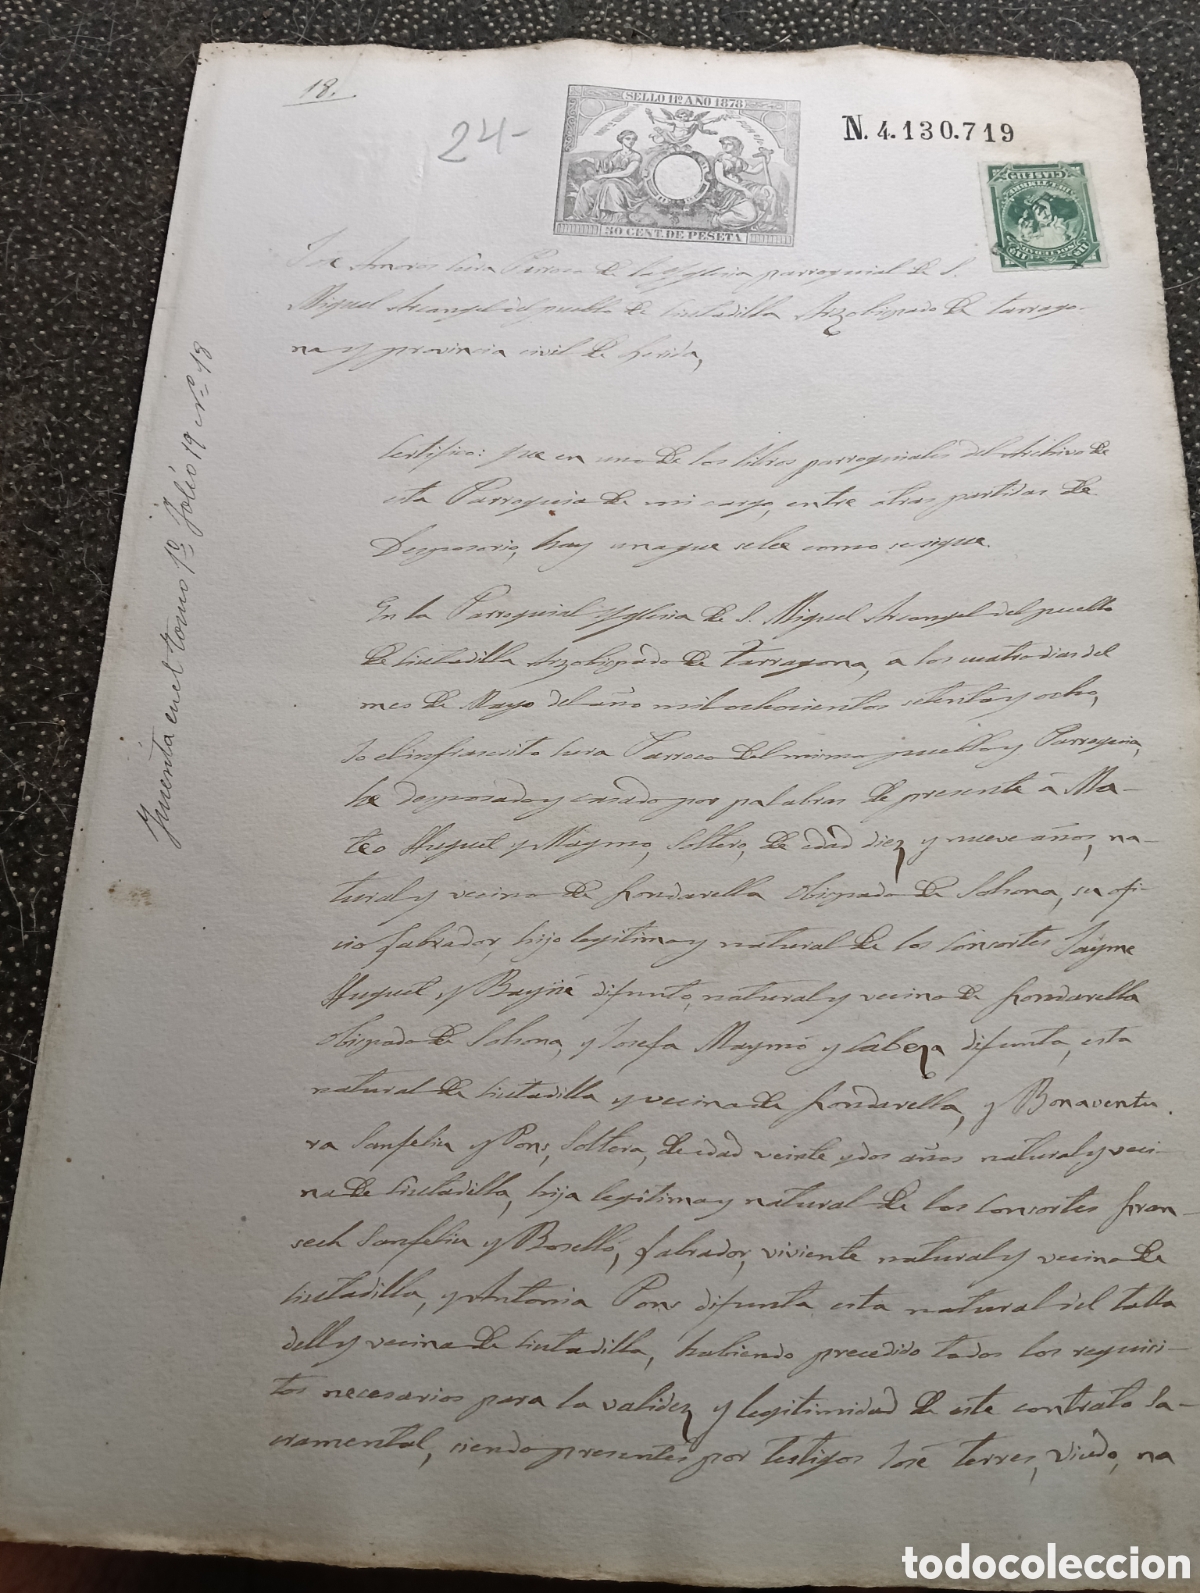 18.
24-
SELLO 11º AÑO 1878
50 CENT. DE PESETA
N. 4.130.719
José Amoros Cura Párroco de la Yglesia parroquial de S.
Miguel Arcangel del pueblo de Ciutadilla Arzobispado de Tarrago-
na y provincia civil de Lerida,
Certifico: que en uno de los libros parroquiales del Archivo de
esta Parroquia de mi cargo, entre otras partidas de
Desposorio, hay una que se lee como se sigue.
En la Parroquial Yglesia de S. Miguel Arcangel del pueblo
de Ciutadilla Arzobispado de Tarragona, á los cuatro dias del
mes de Mayo del año mil ochocientos setenta y ocho,
Yo el infrascrito Cura Párroco del mismo pueblo y Parroquia,
he desposado y casado por palabras de presente á Ma-
teo Huguet y Maymo, Soltero, de edad diez y nueve años, na-
tural y vecino de Fondarella Obispado de Solsona, su ofi-
cio labrador, hijo legitimo y natural de los Consortes Jayme
Huguet y difunto, natural y vecino de Fondarella
Obispado de Solsona, y Josefa Maymó y Cabeza difunta, esta
natural de Ciutadilla y vecina de Fondarella, y Bonaventu
ra Sanfeliu y Pons, Soltera, de edad veinte y dos años natural y veci-
na de Ciutadilla, hija legitima y natural de los Consortes Fran-
sech Sanfeliu y Roselló, labrador, viviente natural y vecino de
Ciutadilla, y Antonia Pons difunta esta natural del Talla
dell y vecina de Ciutadilla, habiendo precedido todos los requici-
tos necesarios para la validez y legitimidad de este contrato Sa-
cramental, siendo presentes por testigos José Terres, Viudo, na
en el tomo 1º fólio 19 nº 18
todocoleccion